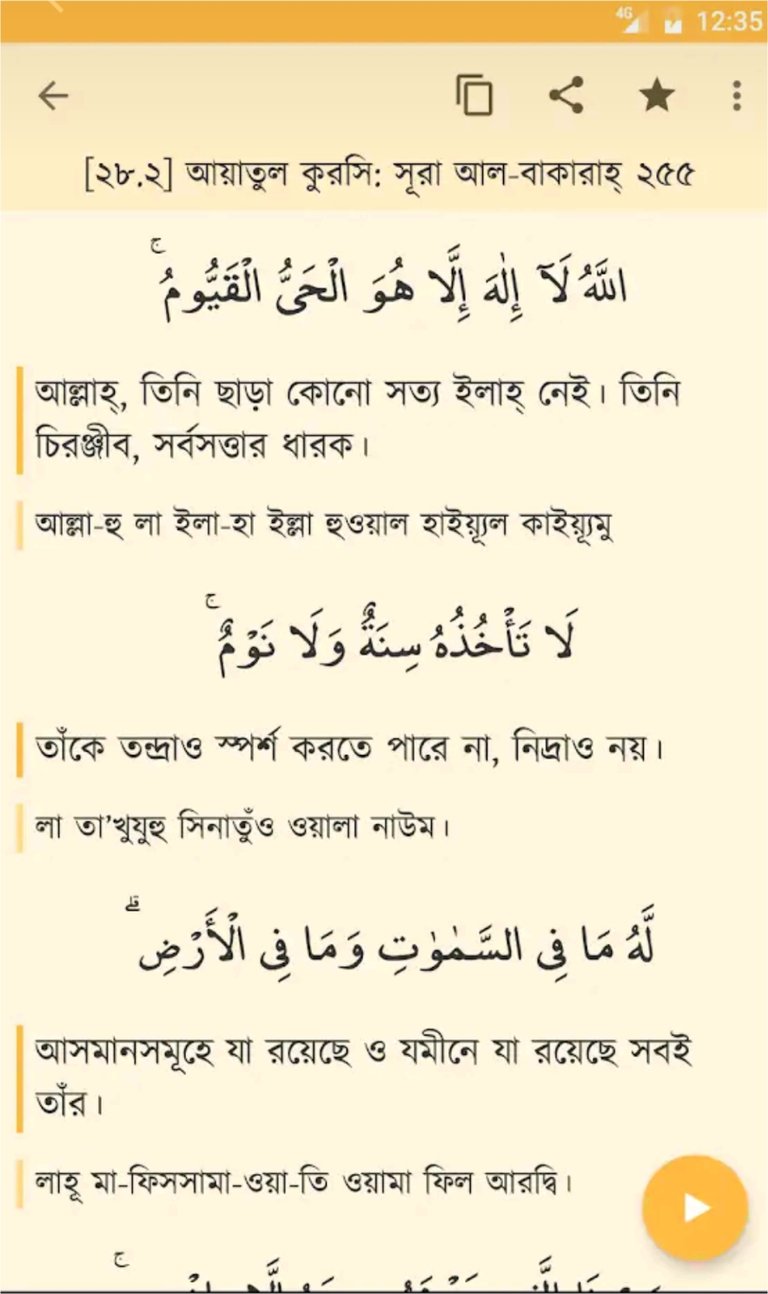 4G 12:35
[২৮.২] আয়াতুল কুরসি: সূরা আল-বাকারাহ্ ২৫৫
اللَّهُ لَآ إِلٰهَ إِلَّا هُوَ الْحَىُّ الْقَيُّومُ ۚ
আল্লাহ্, তিনি ছাড়া কোনো সত্য ইলাহ্ নেই। তিনি
চিরঞ্জীব, সর্বসত্তার ধারক।
আল্লা-হু লা ইলা-হা ইল্লা হুওয়াল হাইয়্যূল কাইয়্যূমু
لَا تَأْخُذُهُ سِنَةٌ وَلَا نَوْمٌ ۚ
তাঁকে তন্দ্রাও স্পর্শ করতে পারে না, নিদ্রাও নয়।
লা তা’খুযুহু সিনাতুঁও ওয়ালা নাউম।
لَّهُ مَا فِى السَّمٰوٰتِ وَمَا فِى الْأَرْضِ ۗ
আসমানসমূহে যা রয়েছে ও যমীনে যা রয়েছে সবই
তাঁর।
লাহূ মা-ফিসসামা-ওয়া-তি ওয়ামা ফিল আরদ্বি।